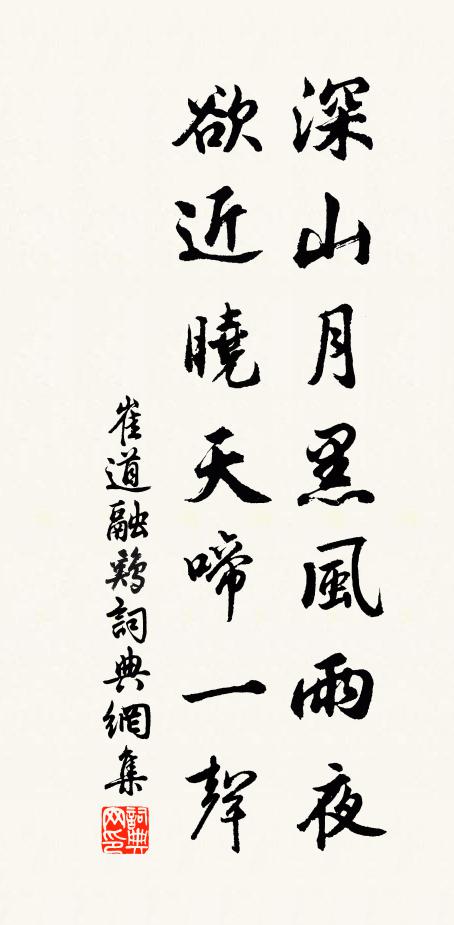 深山月黑風雨夜
欲近曉天啼一聲
崔道融鷄詞典網集
詞典网印